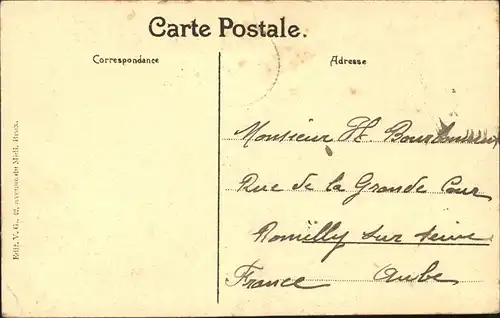 Carte Postale.
Correspondance
Adresse
Monsieur H.
Rue de la Grande Cour
Romilly sur Seine
France Aube
Edit. V. G., 42, avenue du Midi, Brux.